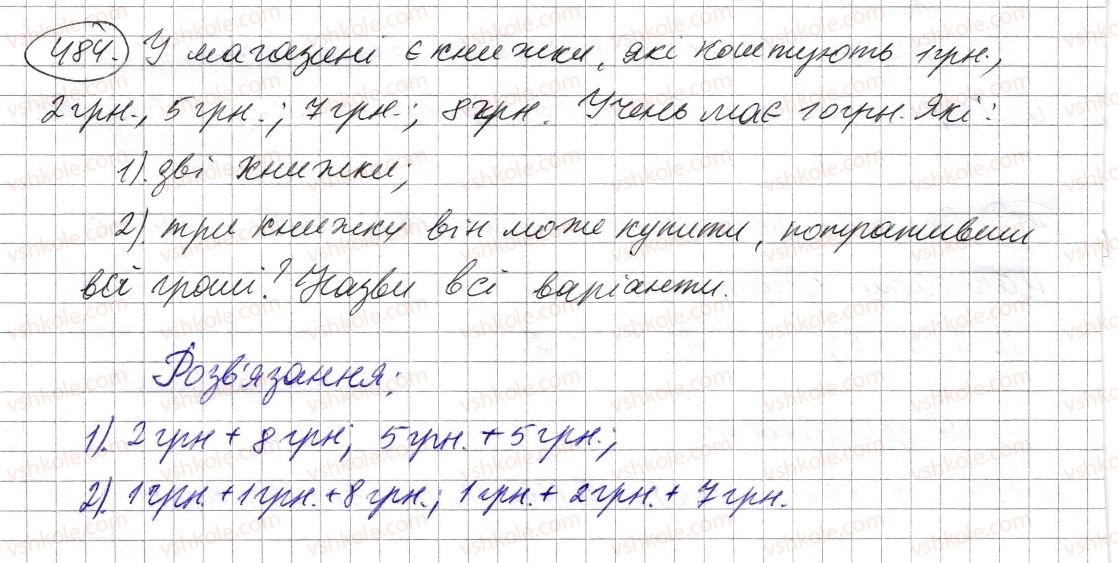 484. У магазині є книжки, які коштують 1 грн.,
2 грн., 5 грн.; 7 грн.; 8 грн. Учень має 10 грн. Які:
1). дві книжки;
2). три книжки він може купити, потративши
всі гроші? Назви всі варіанти.
Розв'язання:
1). 2 грн + 8 грн; 5 грн. + 5 грн.;
2). 1 грн. + 1 грн. + 8 грн.; 1 грн. + 2 грн. + 7 грн.